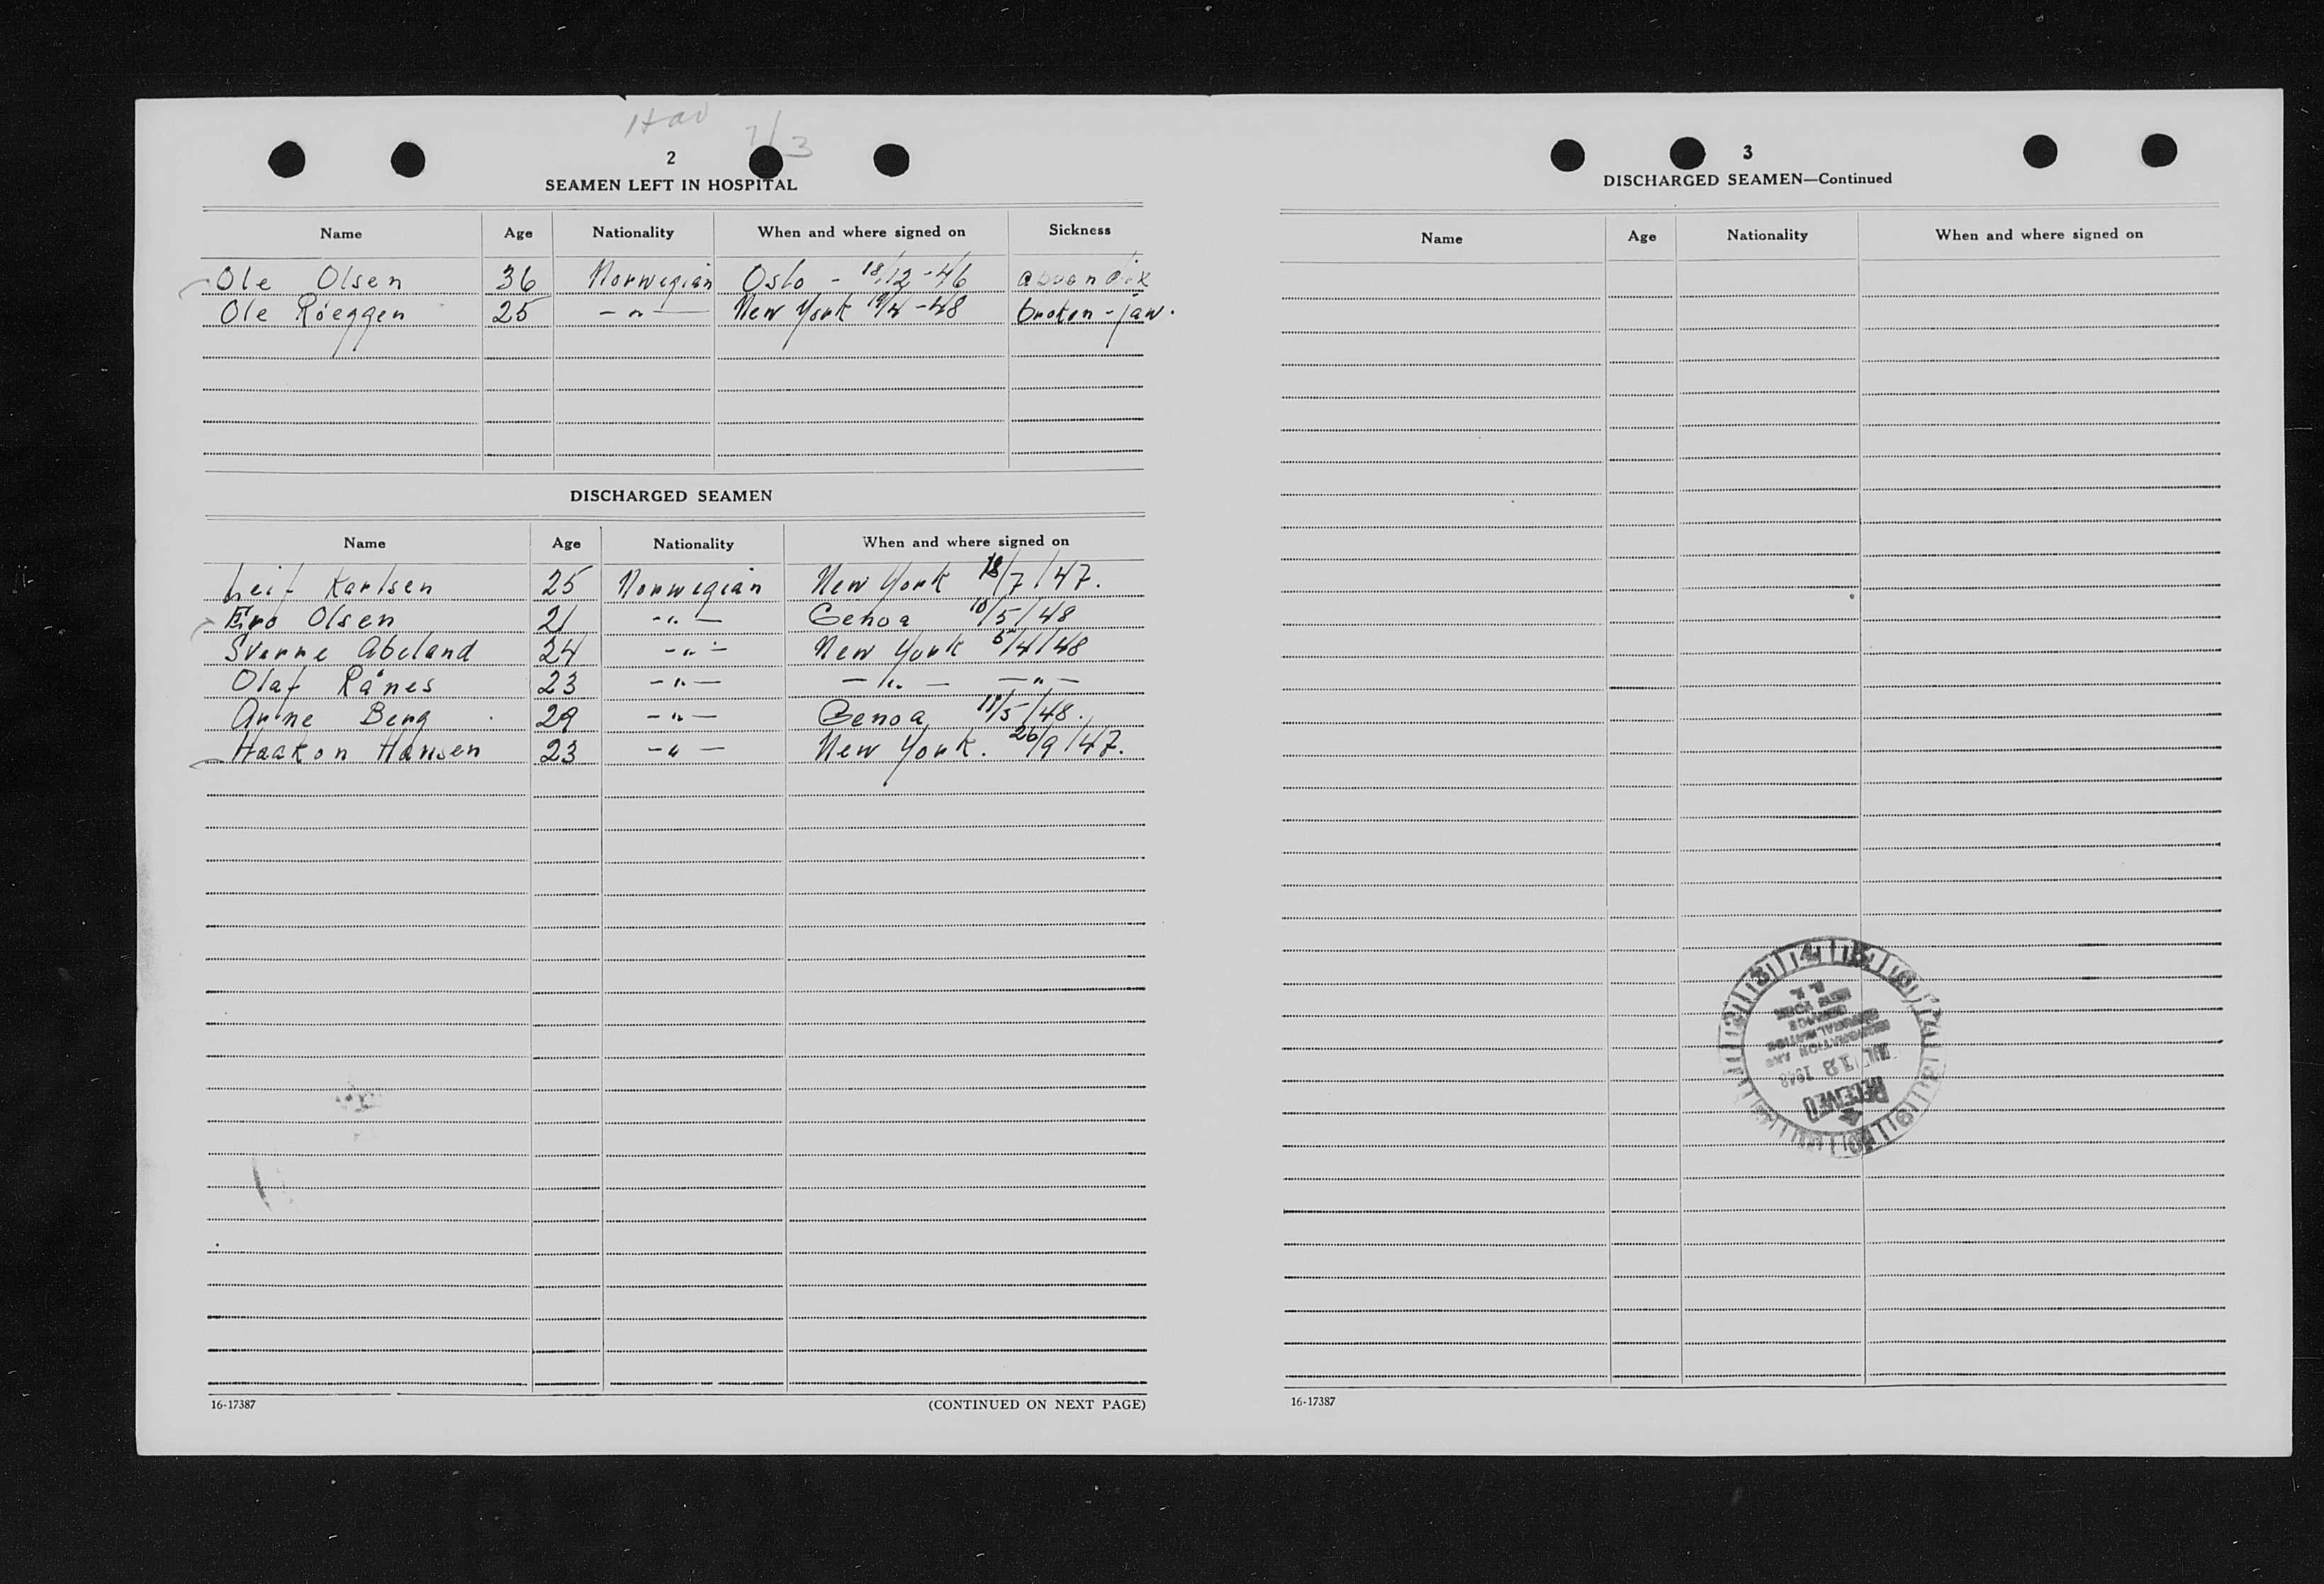 Hav 7/3
2
SEAMEN LEFT IN HOSPITAL
Name Age Nationality When and where signed on Sickness
Ole Olsen 36 Norwegian Oslo - 18/12 - 46 appendix
Ole Röeggen 25 - " - New York 19/4 - 48 broken - jaw.
DISCHARGED SEAMEN
Name Age Nationality When and where signed on
Leif Karlsen 25 Norwegian New York 18/7/47.
Olsen 21 - " - Genoa 10/5/48
Sverre Abeland 24 - " - New York 5/4/48
Olaf Rånes 23 - " - - " - - " -
Arne Berg 29 - " - Genoa 11/5/48.
Haakon Hansen 23 - " - New York. 26/9/47.
16-17387 (CONTINUED ON NEXT PAGE)
3
DISCHARGED SEAMEN—Continued
Name Age Nationality When and where signed on
RECEIVED
JUL 12 1948
IMMIGRATION AND
NATURALIZATION
SERVICE
NEW YORK
N. Y.
16-17387